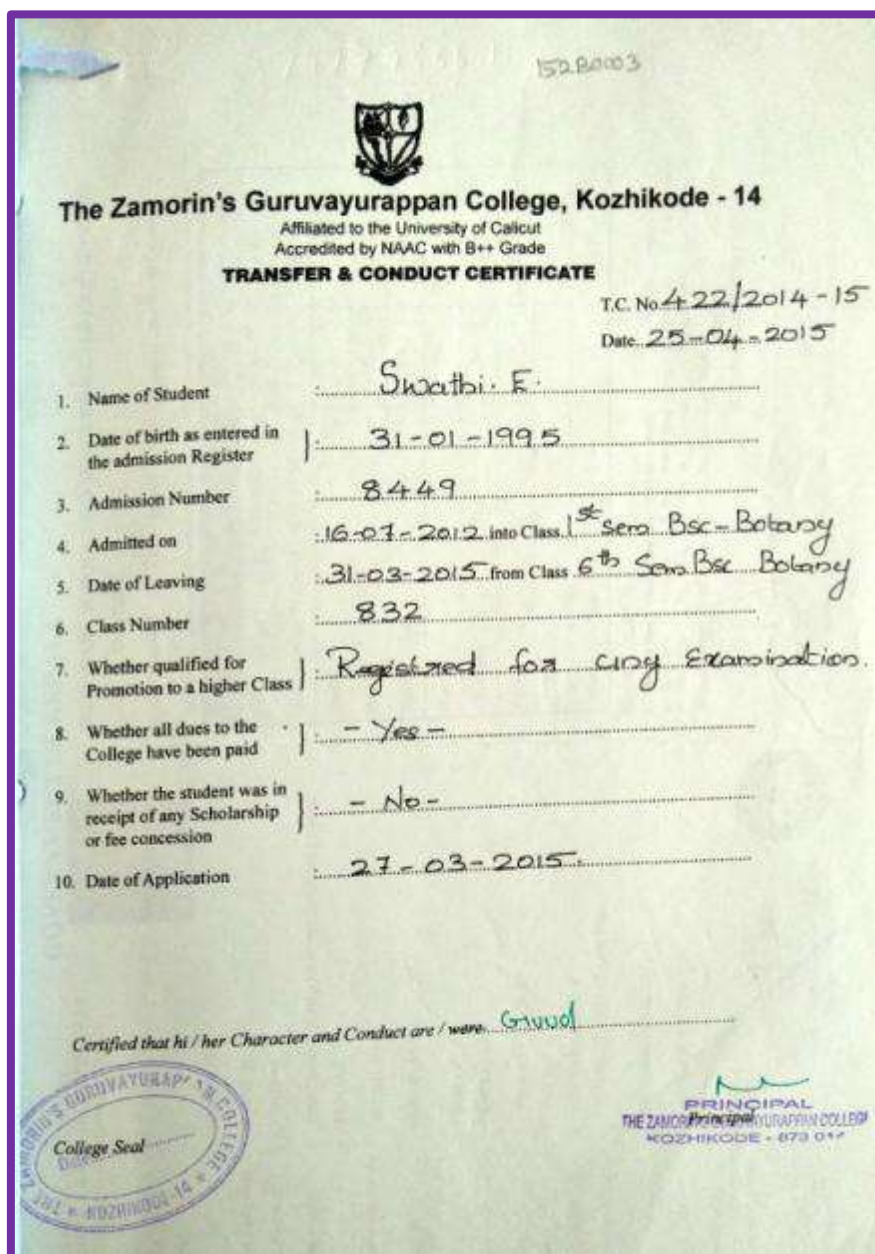 152B0003
The Zamorin's Guruvayurappan College, Kozhikode - 14
Affiliated to the University of Calicut
Accredited by NAAC with B++ Grade
TRANSFER & CONDUCT CERTIFICATE
T.C. No. 422/2014-15
Date 25-04-2015
1. Name of Student : Swathi. E.
2. Date of birth as entered in the admission Register } : 31-01-1995
3. Admission Number : 8449
4. Admitted on : 16-07-2012 into Class 1st sem Bsc-Botany
5. Date of Leaving : 31-03-2015 from Class 6th Sem Bsc Botany
6. Class Number : 832
7. Whether qualified for Promotion to a higher Class } : Registred for any Examination.
8. Whether all dues to the College have been paid } : - Yes -
9. Whether the student was in receipt of any Scholarship or fee concession } : - No -
10. Date of Application : 27-03-2015.
Certified that hi / her Character and Conduct are / were Good
PRINCIPAL
Principal
THE ZAMORIN'S GURUVAYURAPPAN COLLEGE
KOZHIKODE - 673 014
College Seal
Date
THE ZAMORIN'S GURUVAYURAPPAN COLLEGE * KOZHIKODE-14 *